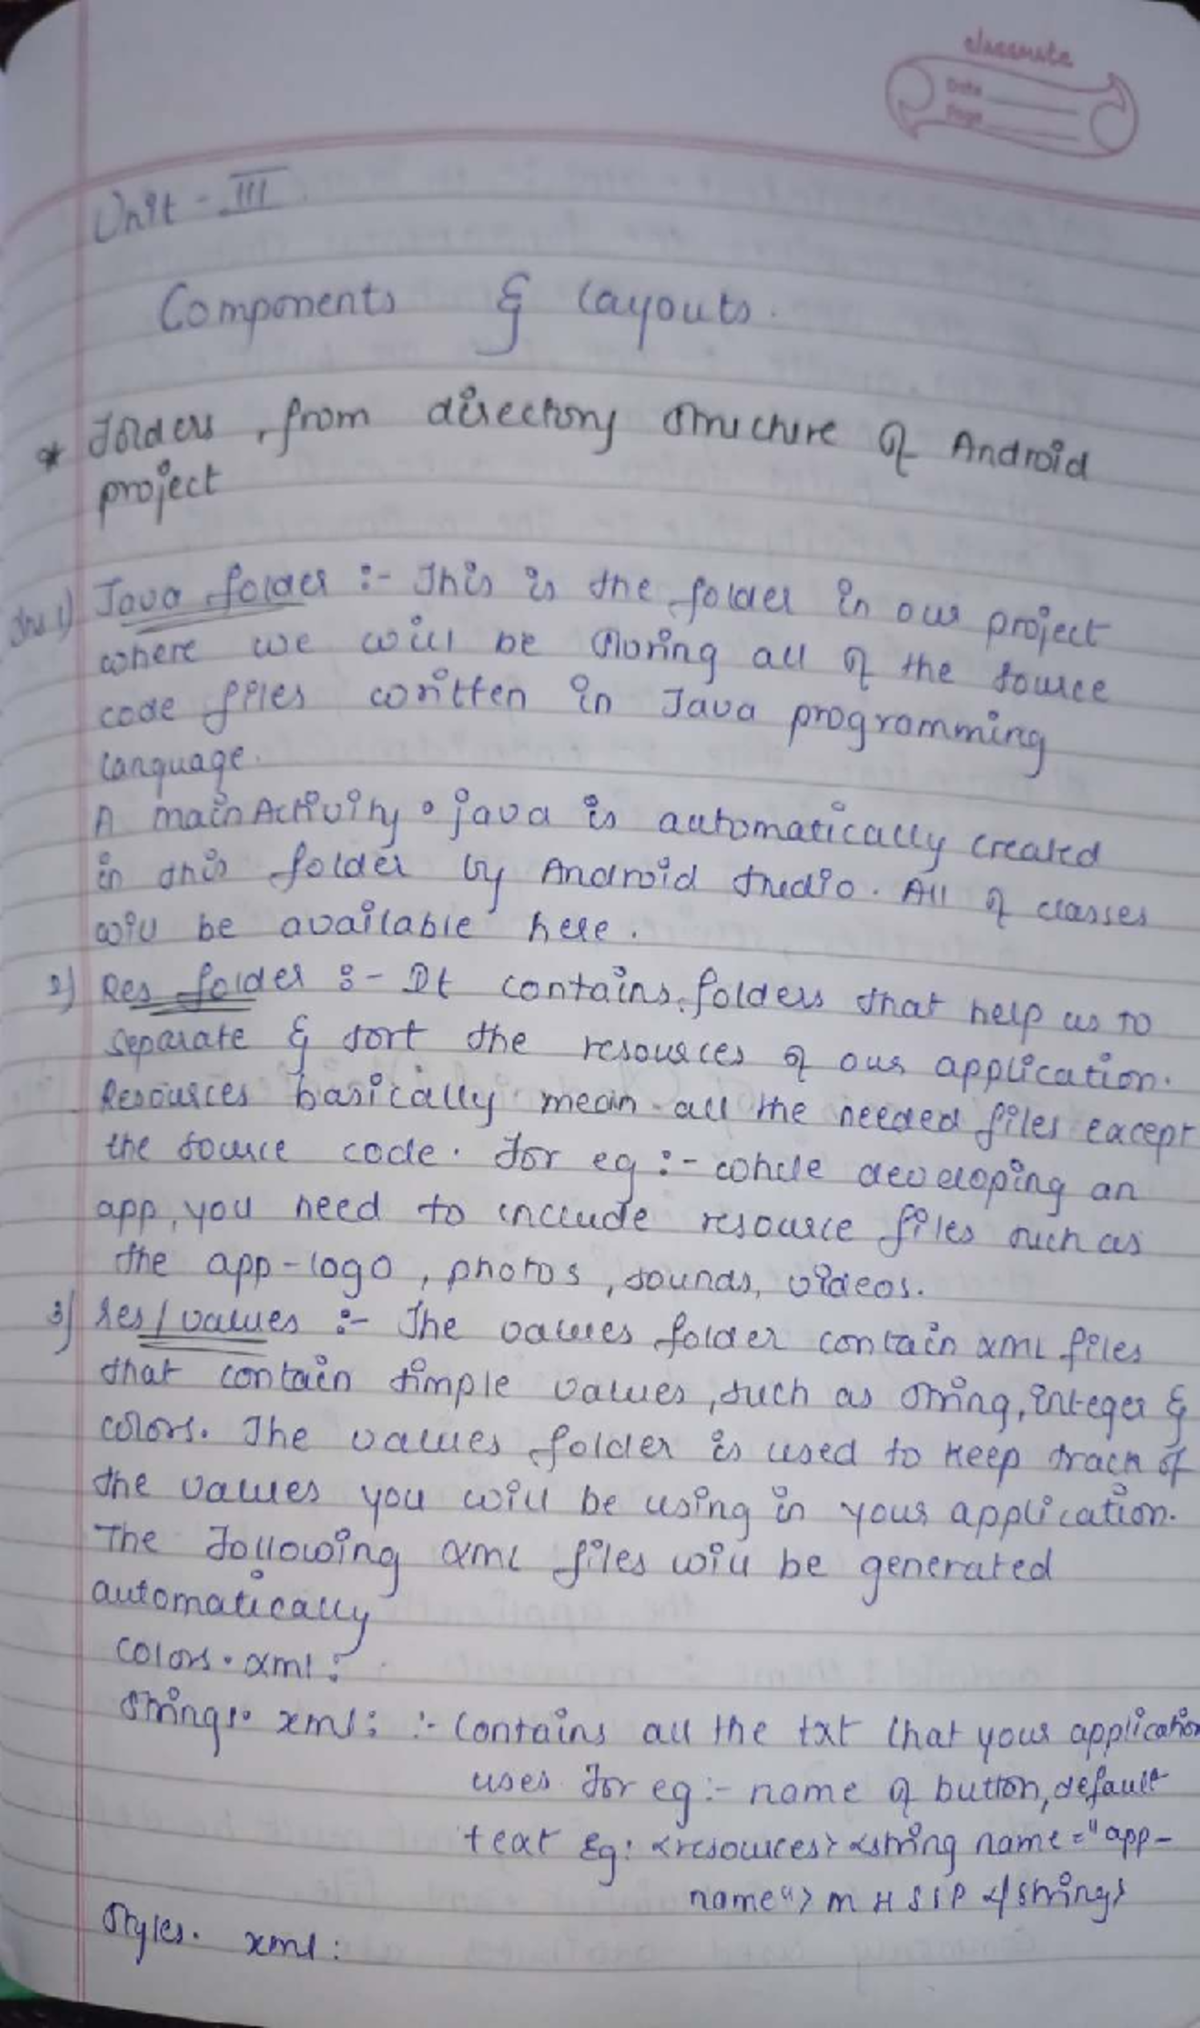 classmate
Date
Page
Unit - III
Components & layouts.
* Folders, from directory structure of Android
project
Ans 1) Java folder :- This is the folder in our project
where we will be storing all of the source
code files written in Java programming
language.
A mainActivity.java is automatically created
in this folder by Android studio. All of classes
will be available here.
2) Res folder :- It contains folders that help us to
separate & sort the resources of our application.
Resources basically mean all the needed files except
the source code. For eg :- while developing an
app, you need to include resource files such as
the app-logo, photos, sounds, videos.
3) res/values :- The values folder contain xml files
that contain simple values, such as string, integer &
colors. The values folder is used to keep track of
the values you will be using in your application.
The following xml files will be generated
automatically
colors.xml :
strings.xml : :- Contains all the txt that your application
uses for eg :- name of button, default
text Eg: <resources> <string name="app-
name"> MHSSP </string>
Styles. xml :